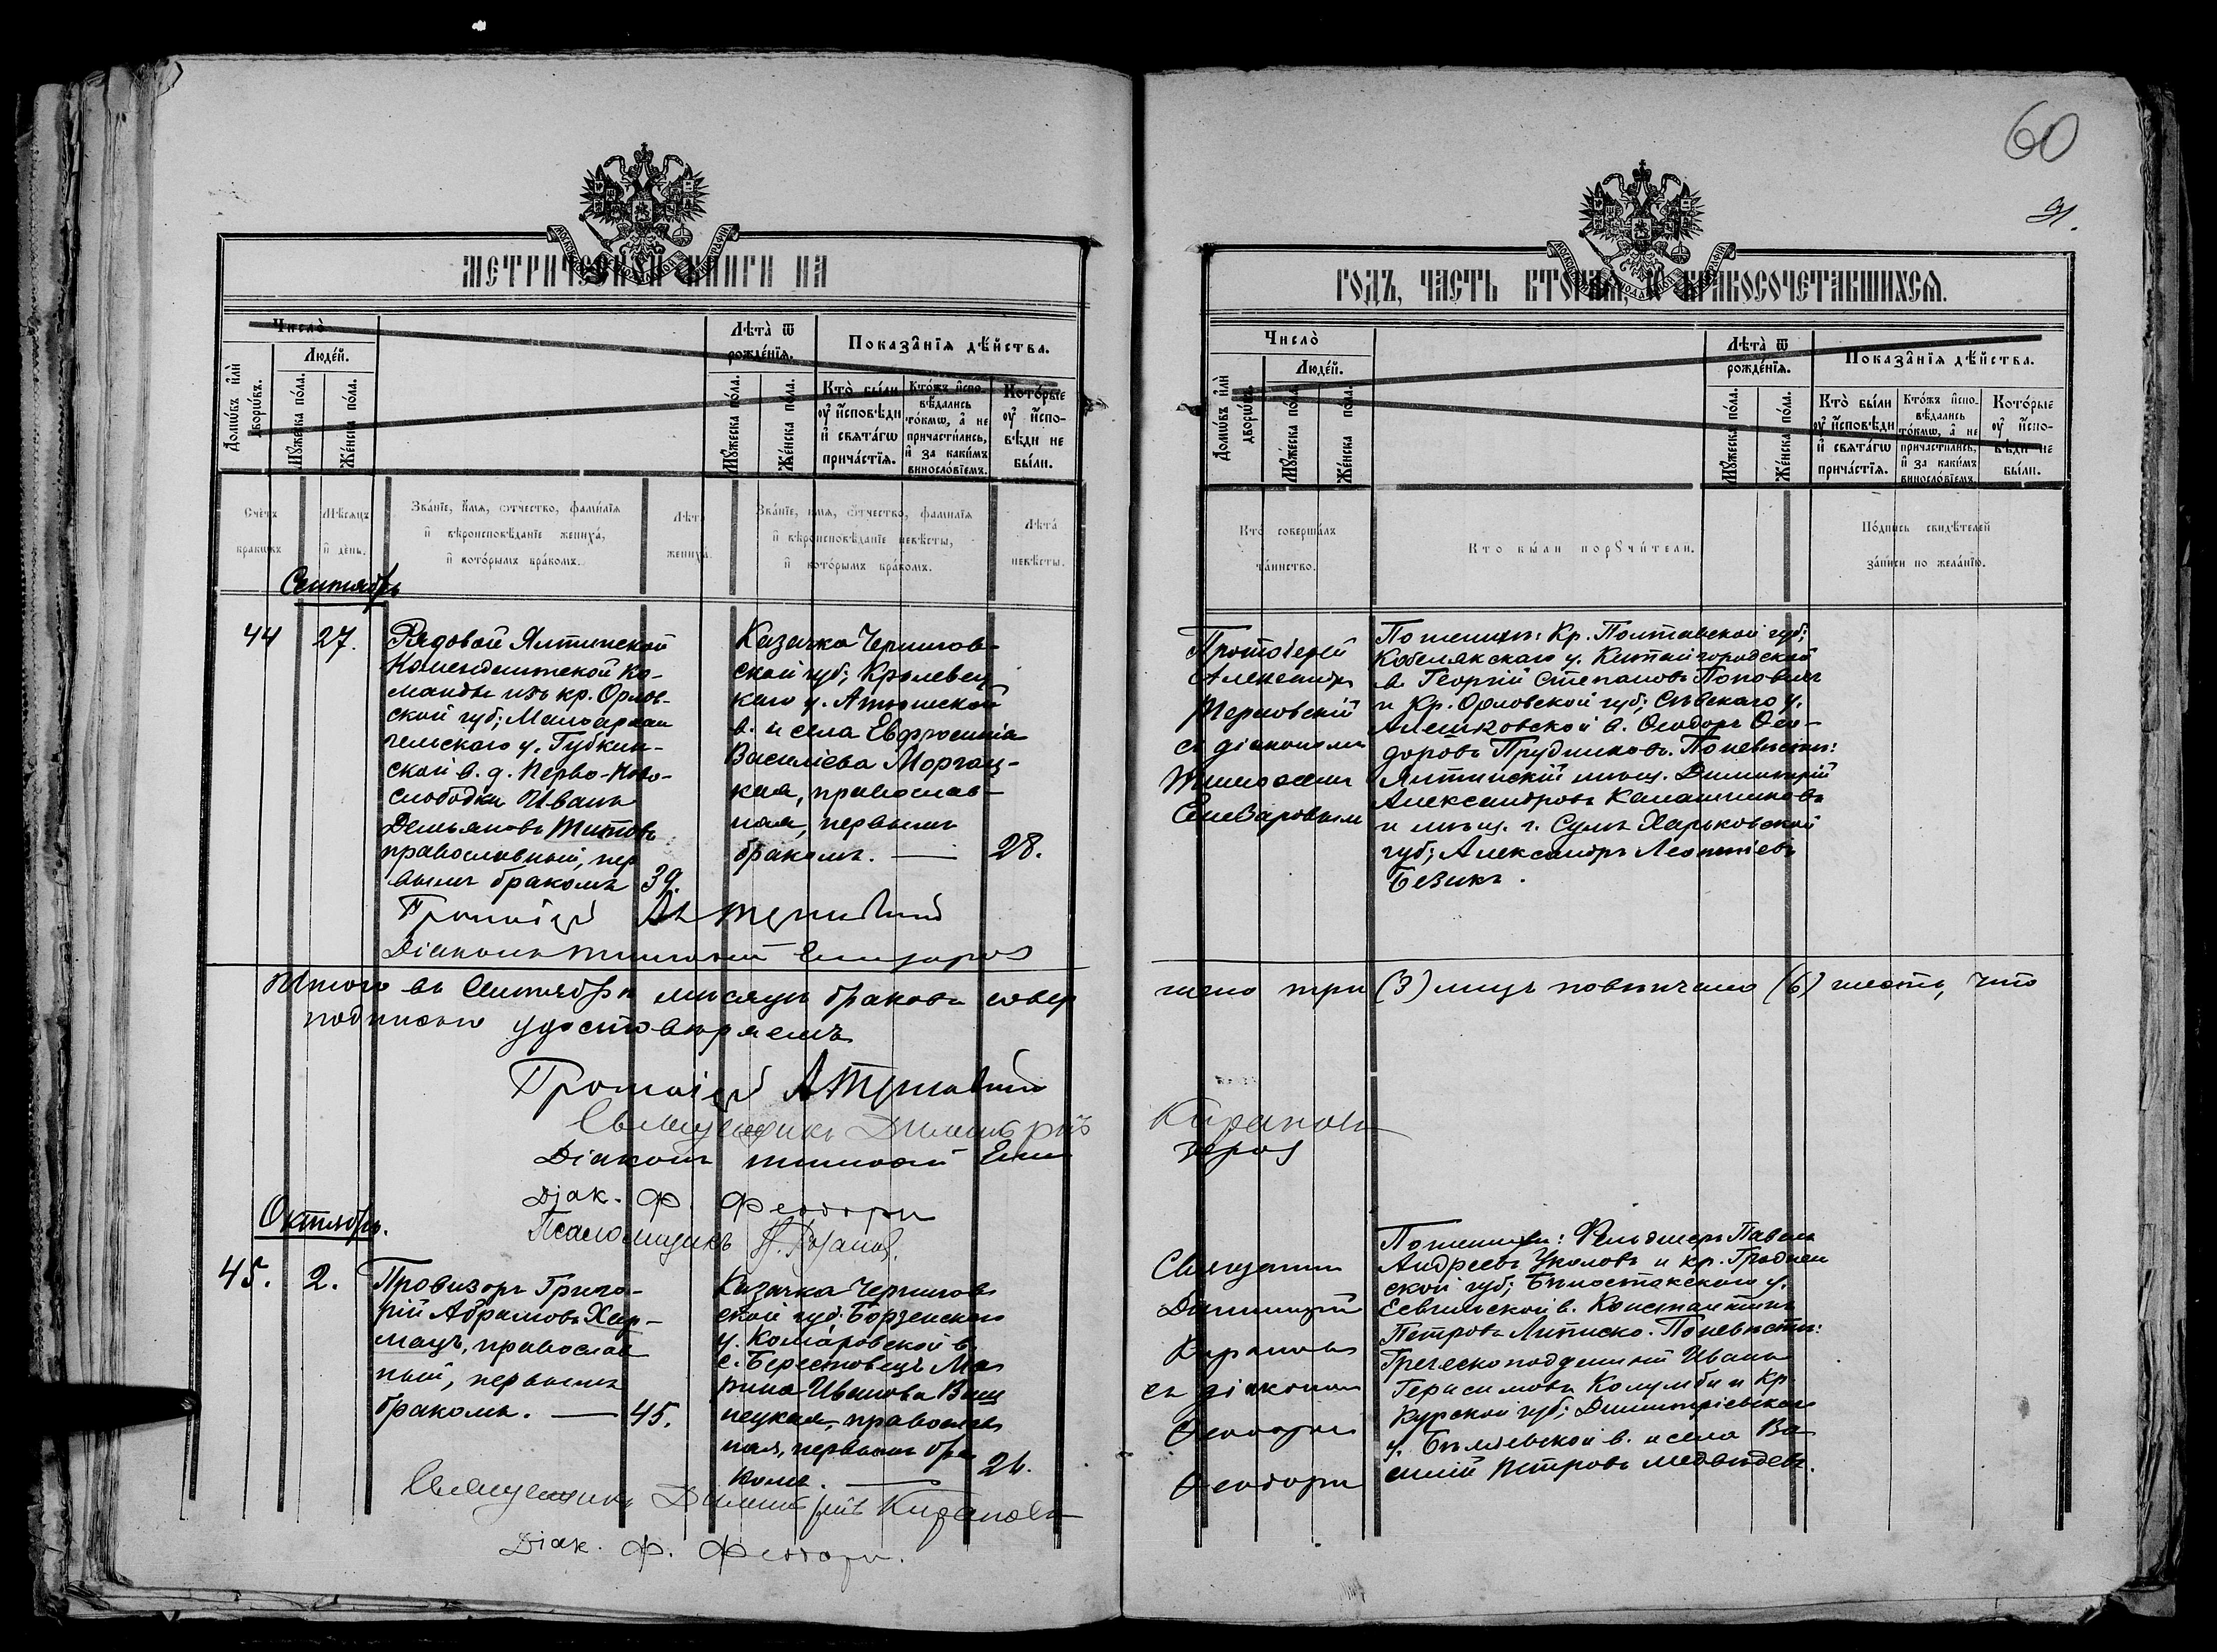 60
31.
МЕТРИЧЕСКОЙ КНИГИ НА
ГОДЪ, ЧАСТЬ ВТОРАЯ, О БРАКОСОЧЕТАВШИХСЯ.
Число̀
Домѡ́въ и҆лѝ дворѡ́въ.
Людє́й.
Мꙋ́жеска по́ла.
Же́нска по́ла.
Лѣта̀ ѿ рожде́нїѧ.
Мꙋ́жеска по́ла.
Же́нска по́ла.
Показа̑нїѧ дѣ́йства.
Кто̀ бы́ли оу҆ и҆сповѣди и҆ свѧта́гѡ прича́стїѧ.
Кто́жъ и҆спо-
вѣдались
то́кмѡ, а҆ не
причасти́лись,
и҆ за каки́мъ
винослові́емъ.
Кото́рые
оу҆ и҆спо-
вѣди не
бы́ли.
Счетъ браковъ
Мѣсяцъ и день.
Званіе, имя, отчество, фамилія
и вѣроисповѣданіе жениха,
и которымъ бракомъ.
Лѣта жениха.
Званіе, имя, отчество, фамилія
и вѣроисповѣданіе невѣсты,
и которымъ бракомъ.
Лѣта невѣсты.
Кто совершалъ таинство.
Кто были поручители.
Подпись свидѣтелей записи по желанію.
Сентябрь
44
27.
Рядовой Ялтинской
Комендантской Ко-
манды изъ кр. Орлов-
ской губ; Малоархан
гельскаго у. Губкин-
ской в. д. Перво-Ново-
слободки Иванъ
Демьяновъ Титовъ
православный, пер
вымъ бракомъ
39.
Казачка Чернигов-
ской губ; Кролевец
каго у. Атюшской
в. и села Евфросинія
Василіева Моргац-
кая, православ-
ная, первымъ
бракомъ. —
28.
Протоіерей
Александръ
Терновскій
съ діакономъ
Тимоѳеемъ
Поженихъ: Кр. Полтавской губ;
Кобелякскаго у. Китайгородской
в. Георгій Степановъ Поповичъ
и Кр. Орловской губ; Сѣвскаго у.
Алешковской в. Ѳеодоръ Ѳео-
доровъ Прудниковъ. Поневѣстѣ:
Ялтинскій мѣщ. Димитрій
Александровъ Калашниковъ
и мѣщ. г. Сумъ Харьковской
губ; Александръ Леонтіевъ
Безикъ.
Протоіерей А. Терновскій
Діаконъ Тимоѳей Елизаров
Итого въ Сентябрѣ мѣсяцѣ браковъ совер
шено три (3) лицъ повѣнчано (6) шесть, что
подписью удостовѣряемъ
Протоіерей А Терновскій
Священникъ Димитрій Кирановъ
Діаконъ Тимоѳей Ели
заров
Діак. Ф. Феодори
Псаломщикъ
Октябрь.
45.
2.
Провизоръ Григо-
рій Абрамовъ Хар-
мацъ, православ
ный, первымъ
бракомъ. —
45.
Казачка Чернигов
ской губ. Борзенскаго
у. Комаровской в.
с. Берестовецъ Ма
рина Иванова Виш
нецкая, православ
ная, первымъ бра
комъ. —
26.
Священникъ
Димитрій
Кирановъ
съ діакономъ
Ѳеодоромъ
Ѳеодори
Поженихѣ: Фельдшеръ Павелъ
Андреевъ Укаловъ и кр. Гроднен
ской губ; Бѣлостокскаго у.
в. Константинъ
Петровъ Липиско. Поневѣстѣ:
Греческоподданный Иванъ
Герасимовъ Колумби и Кр.
Курской губ; Димитріевскаго
у. в. и села Ва
силій Петровъ Медвѣдевъ.
Священникъ Димитрій Кирановъ
Діак. Ф. Феодори.